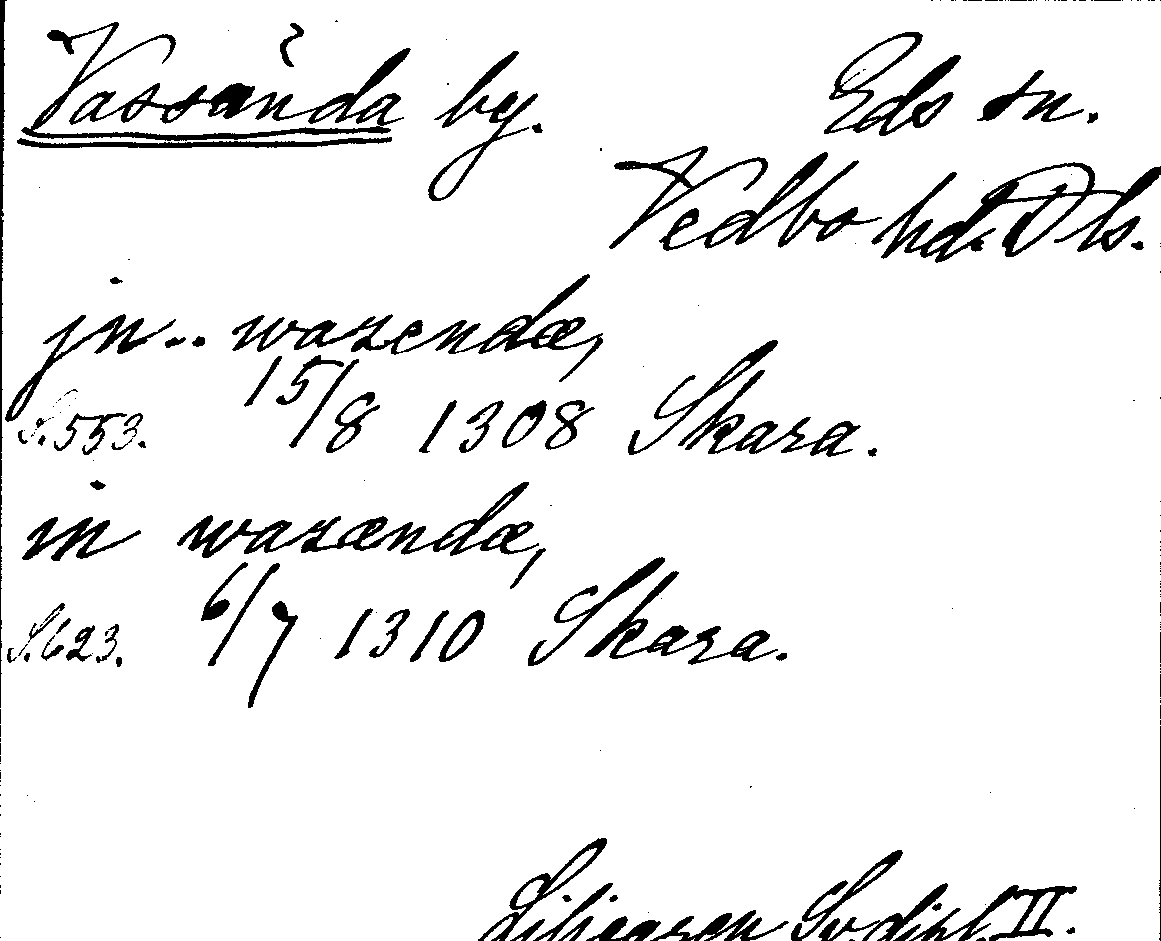 Vassända by. Eds sn.
Vedbo hd. Dls.
jn.. wazendæ,
S. 553. 15/8 1308 Skara.
in wazændæ,
S. 623. 6/7 1310 Skara.
Liljegren Sv. dipl. II.